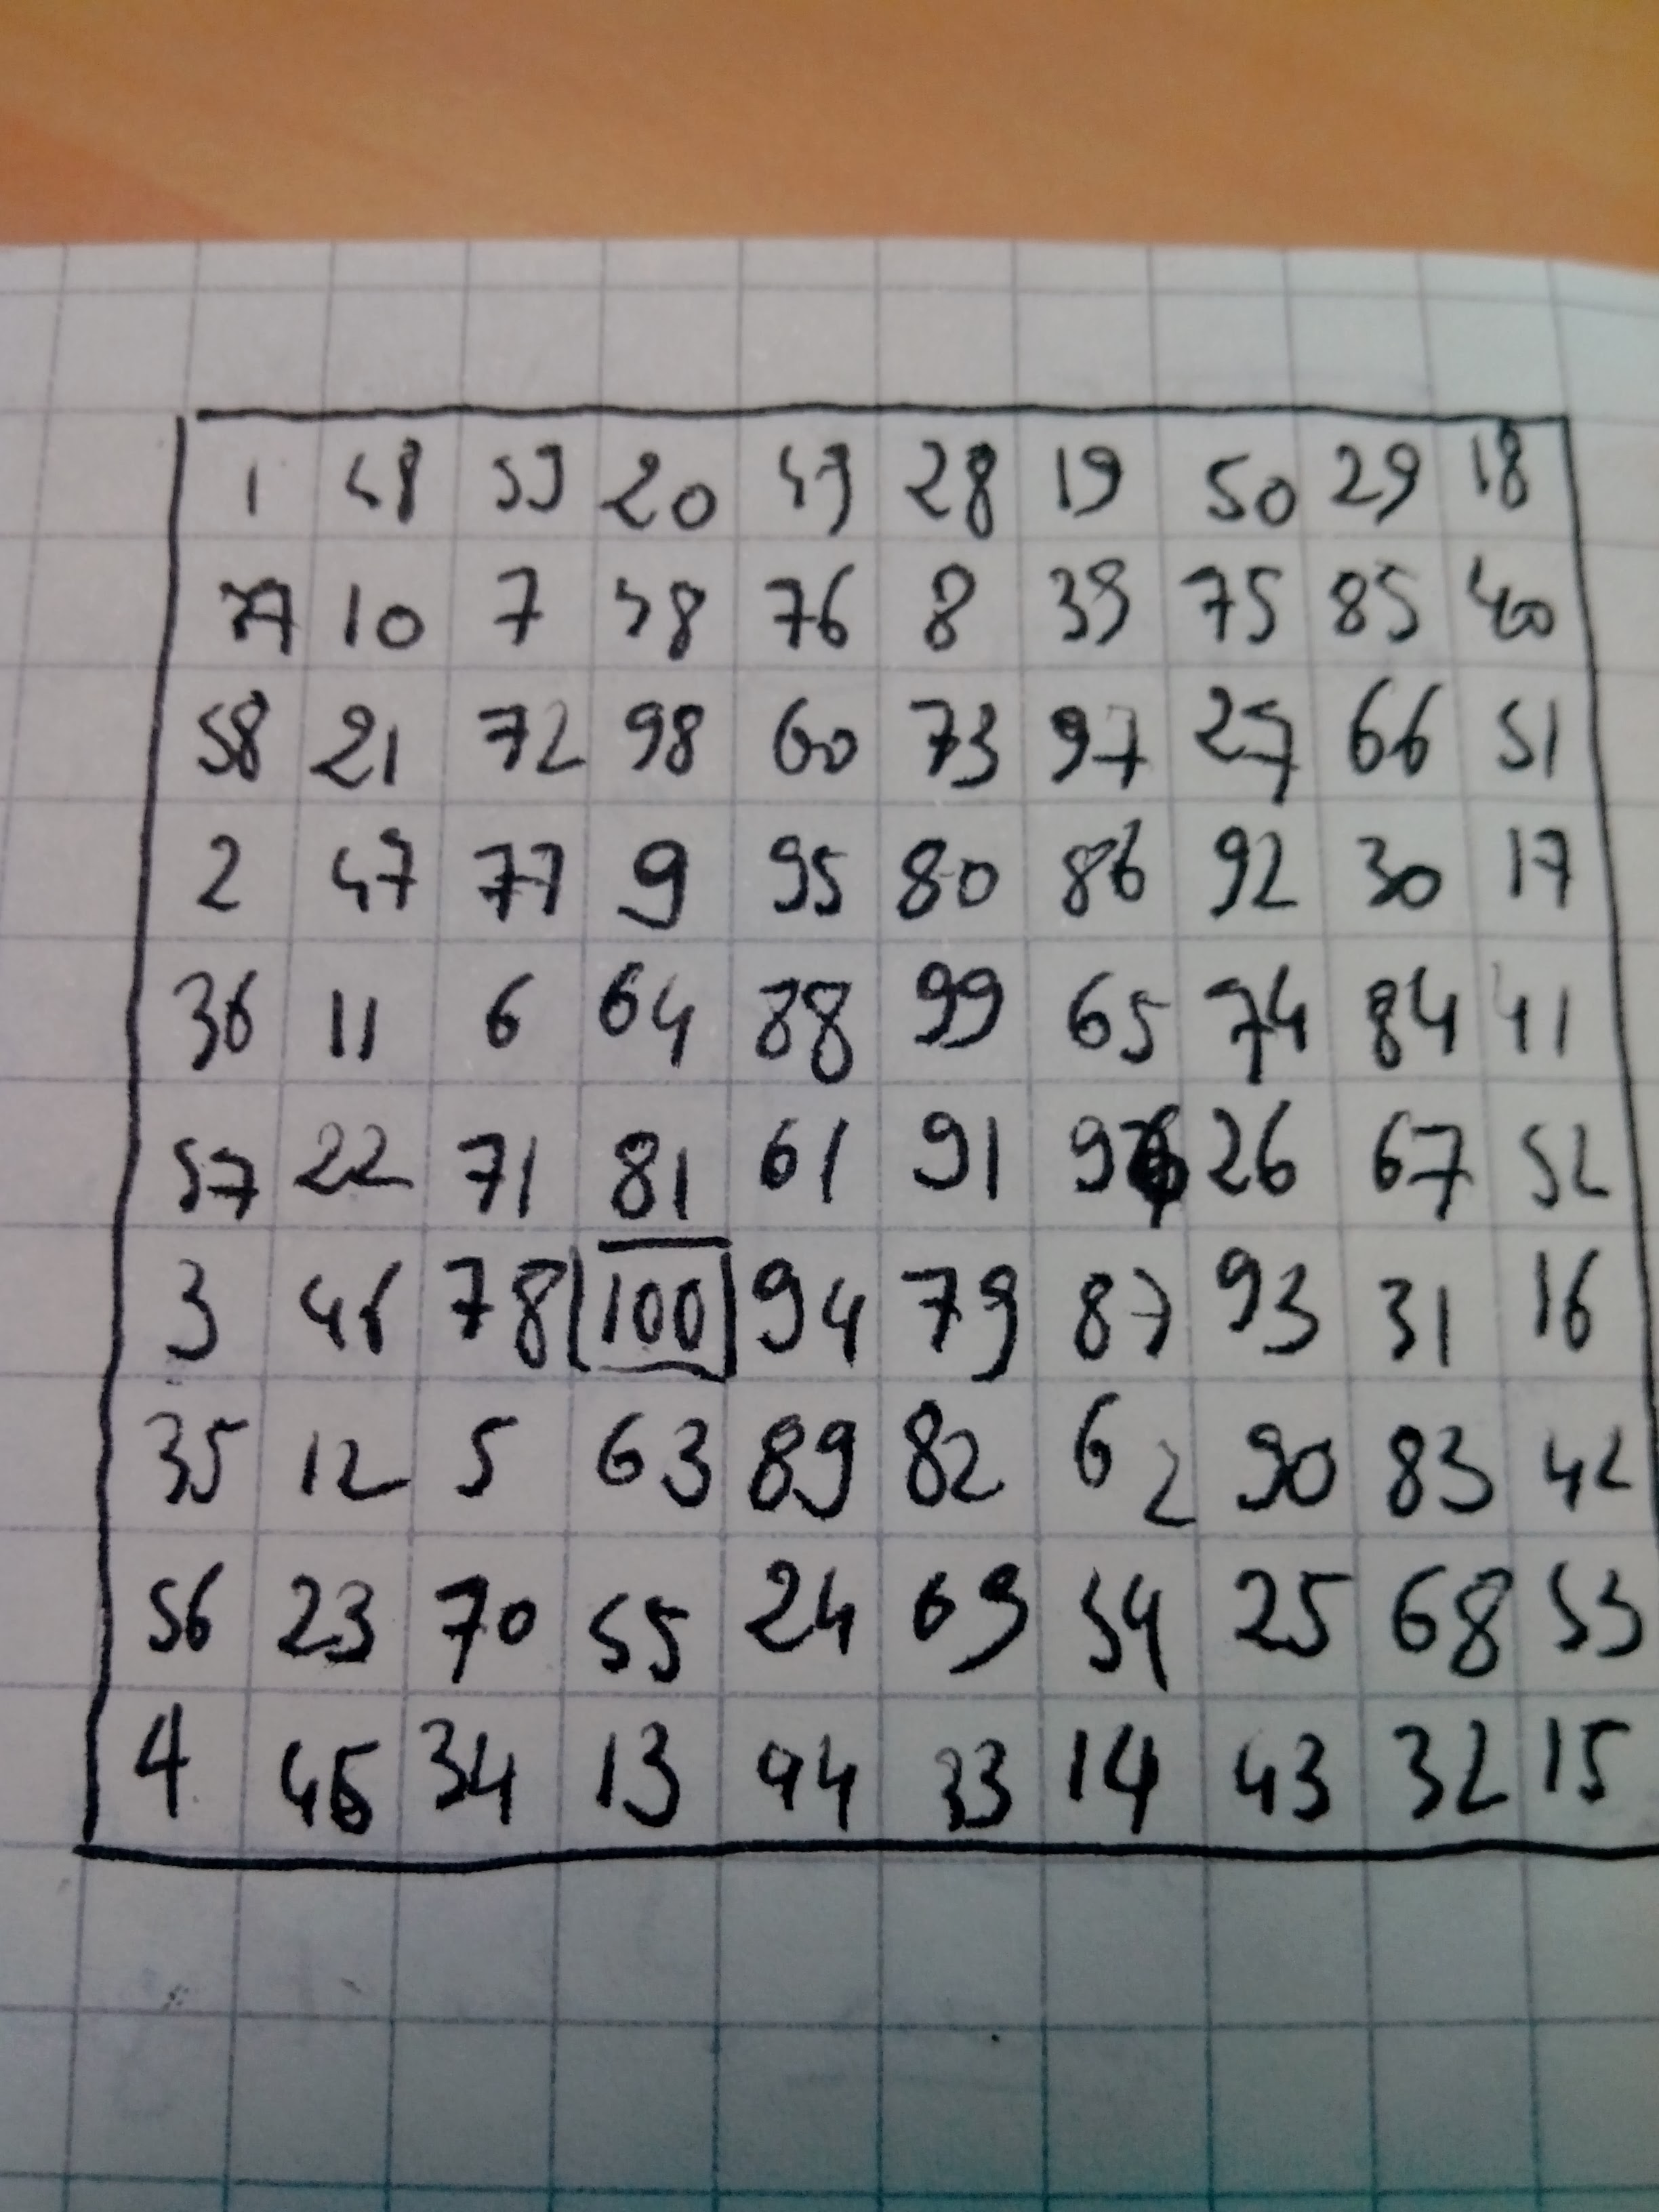 1 48 59 20 49 28 19 50 29 18
37 10 7 38 76 8 39 75 85 40
58 21 72 98 60 73 97 27 66 51
2 47 77 9 95 80 86 92 30 17
36 11 6 64 88 99 65 74 84 41
57 22 71 81 61 91 96 26 67 52
3 46 78 100 94 79 87 93 31 16
35 12 5 63 89 82 62 90 83 42
56 23 70 55 24 69 54 25 68 53
4 45 34 13 44 33 14 43 32 15